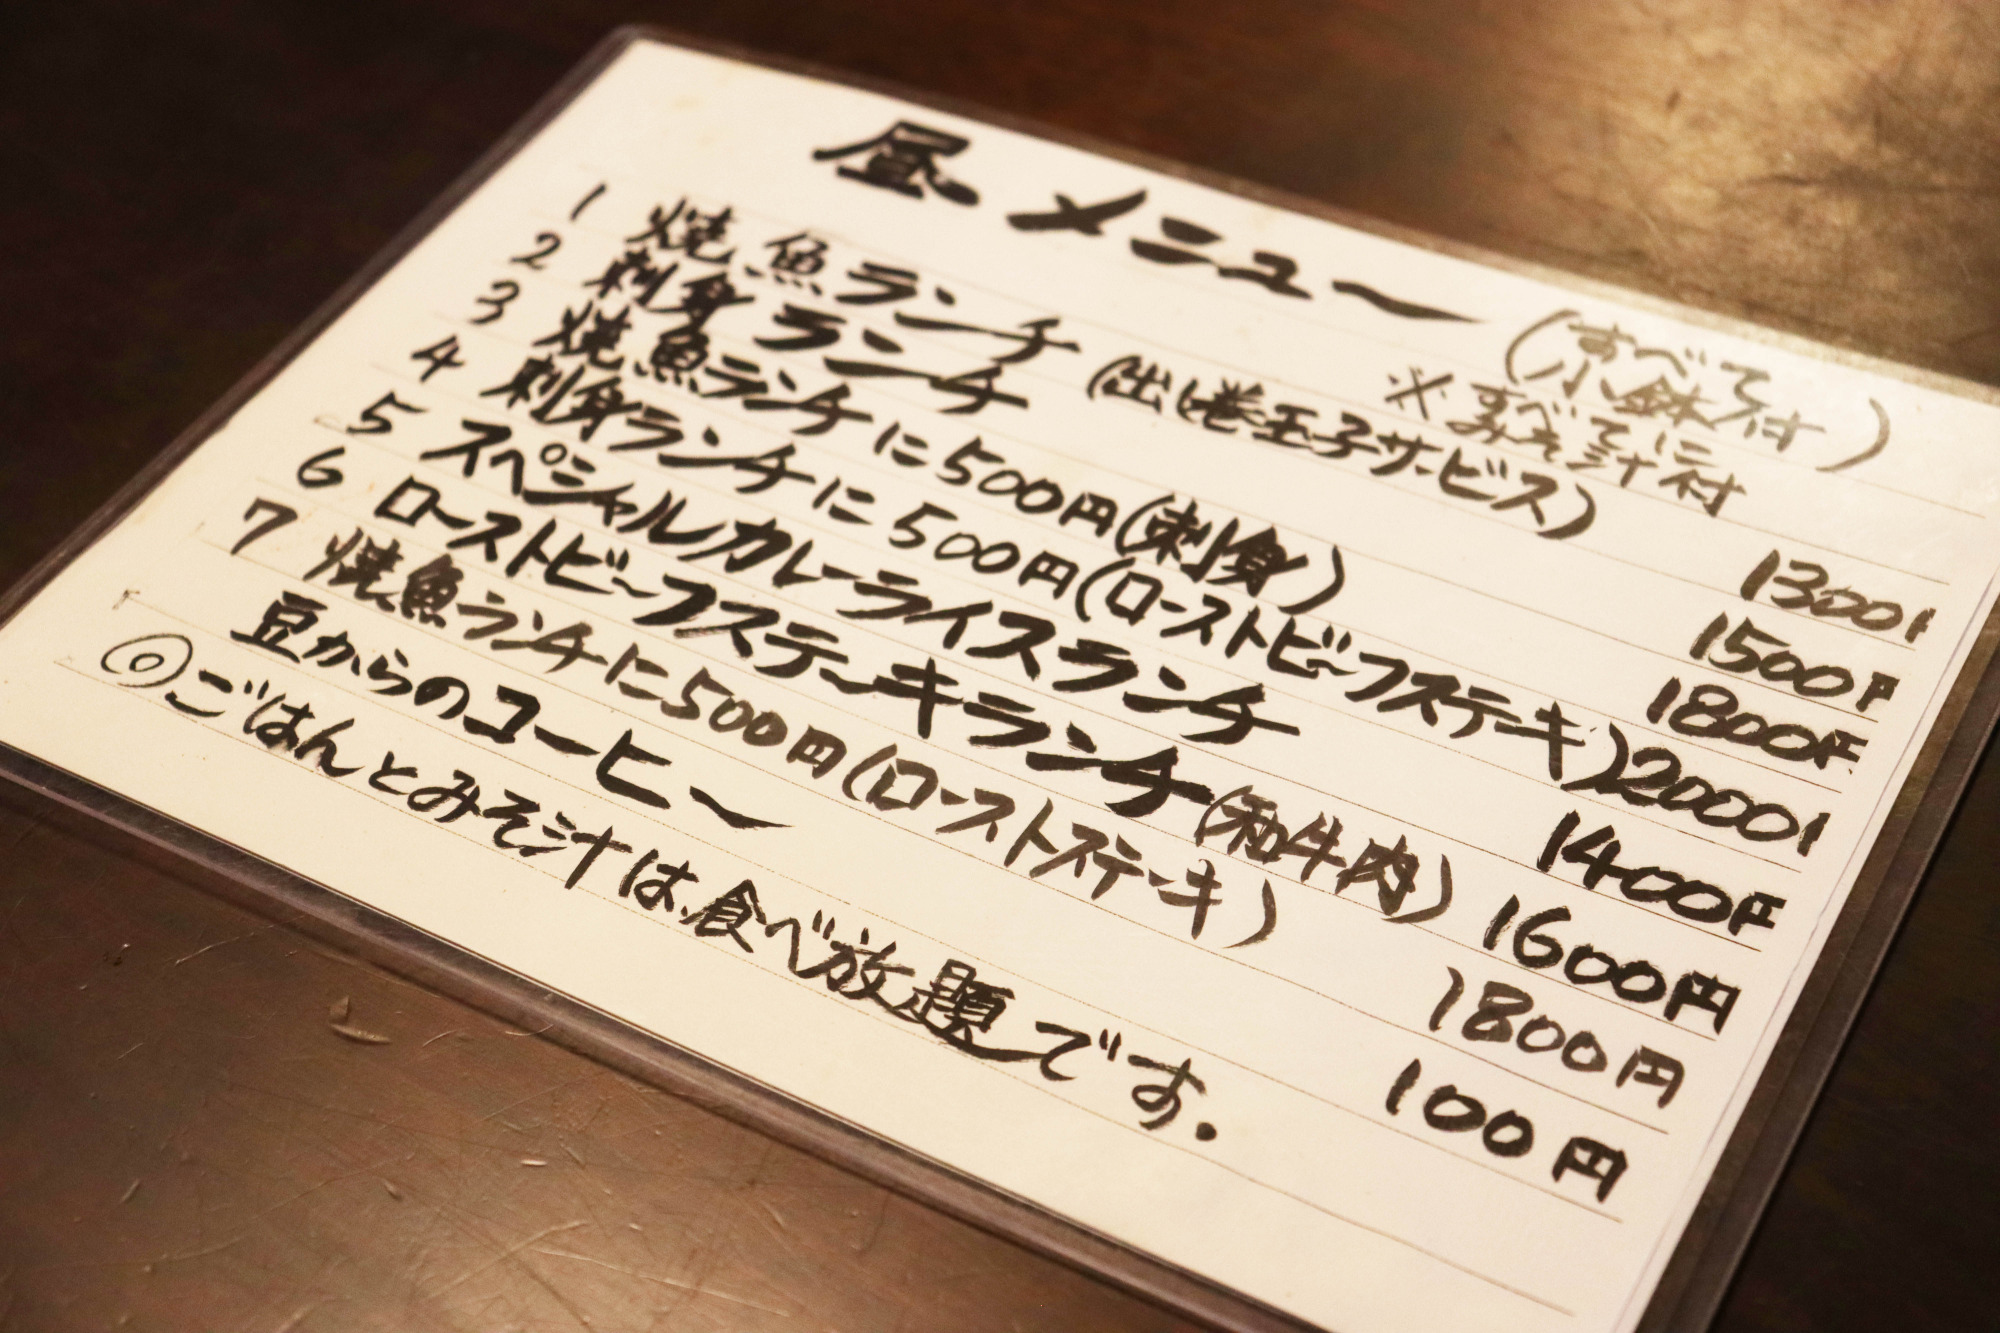 昼メニュー
(すべて
小鉢付)
※すべてに
みそ汁付
1 焼魚ランチ (出し巻玉子サービス) 1300
2 刺身ランチ 1500円
3 焼魚ランチに500円(刺身) 1800円
4 刺身ランチに500円(ローストビーフステーキ) 2000
5 スペシャルカレーライスランチ 1400円
6 ローストビーフステーキランチ(和牛肉) 1600円
7 焼魚ランチに500円(ローストステーキ) 1800円
豆からのコーヒー 100円
◎ごはんとみそ汁は食べ放題です.